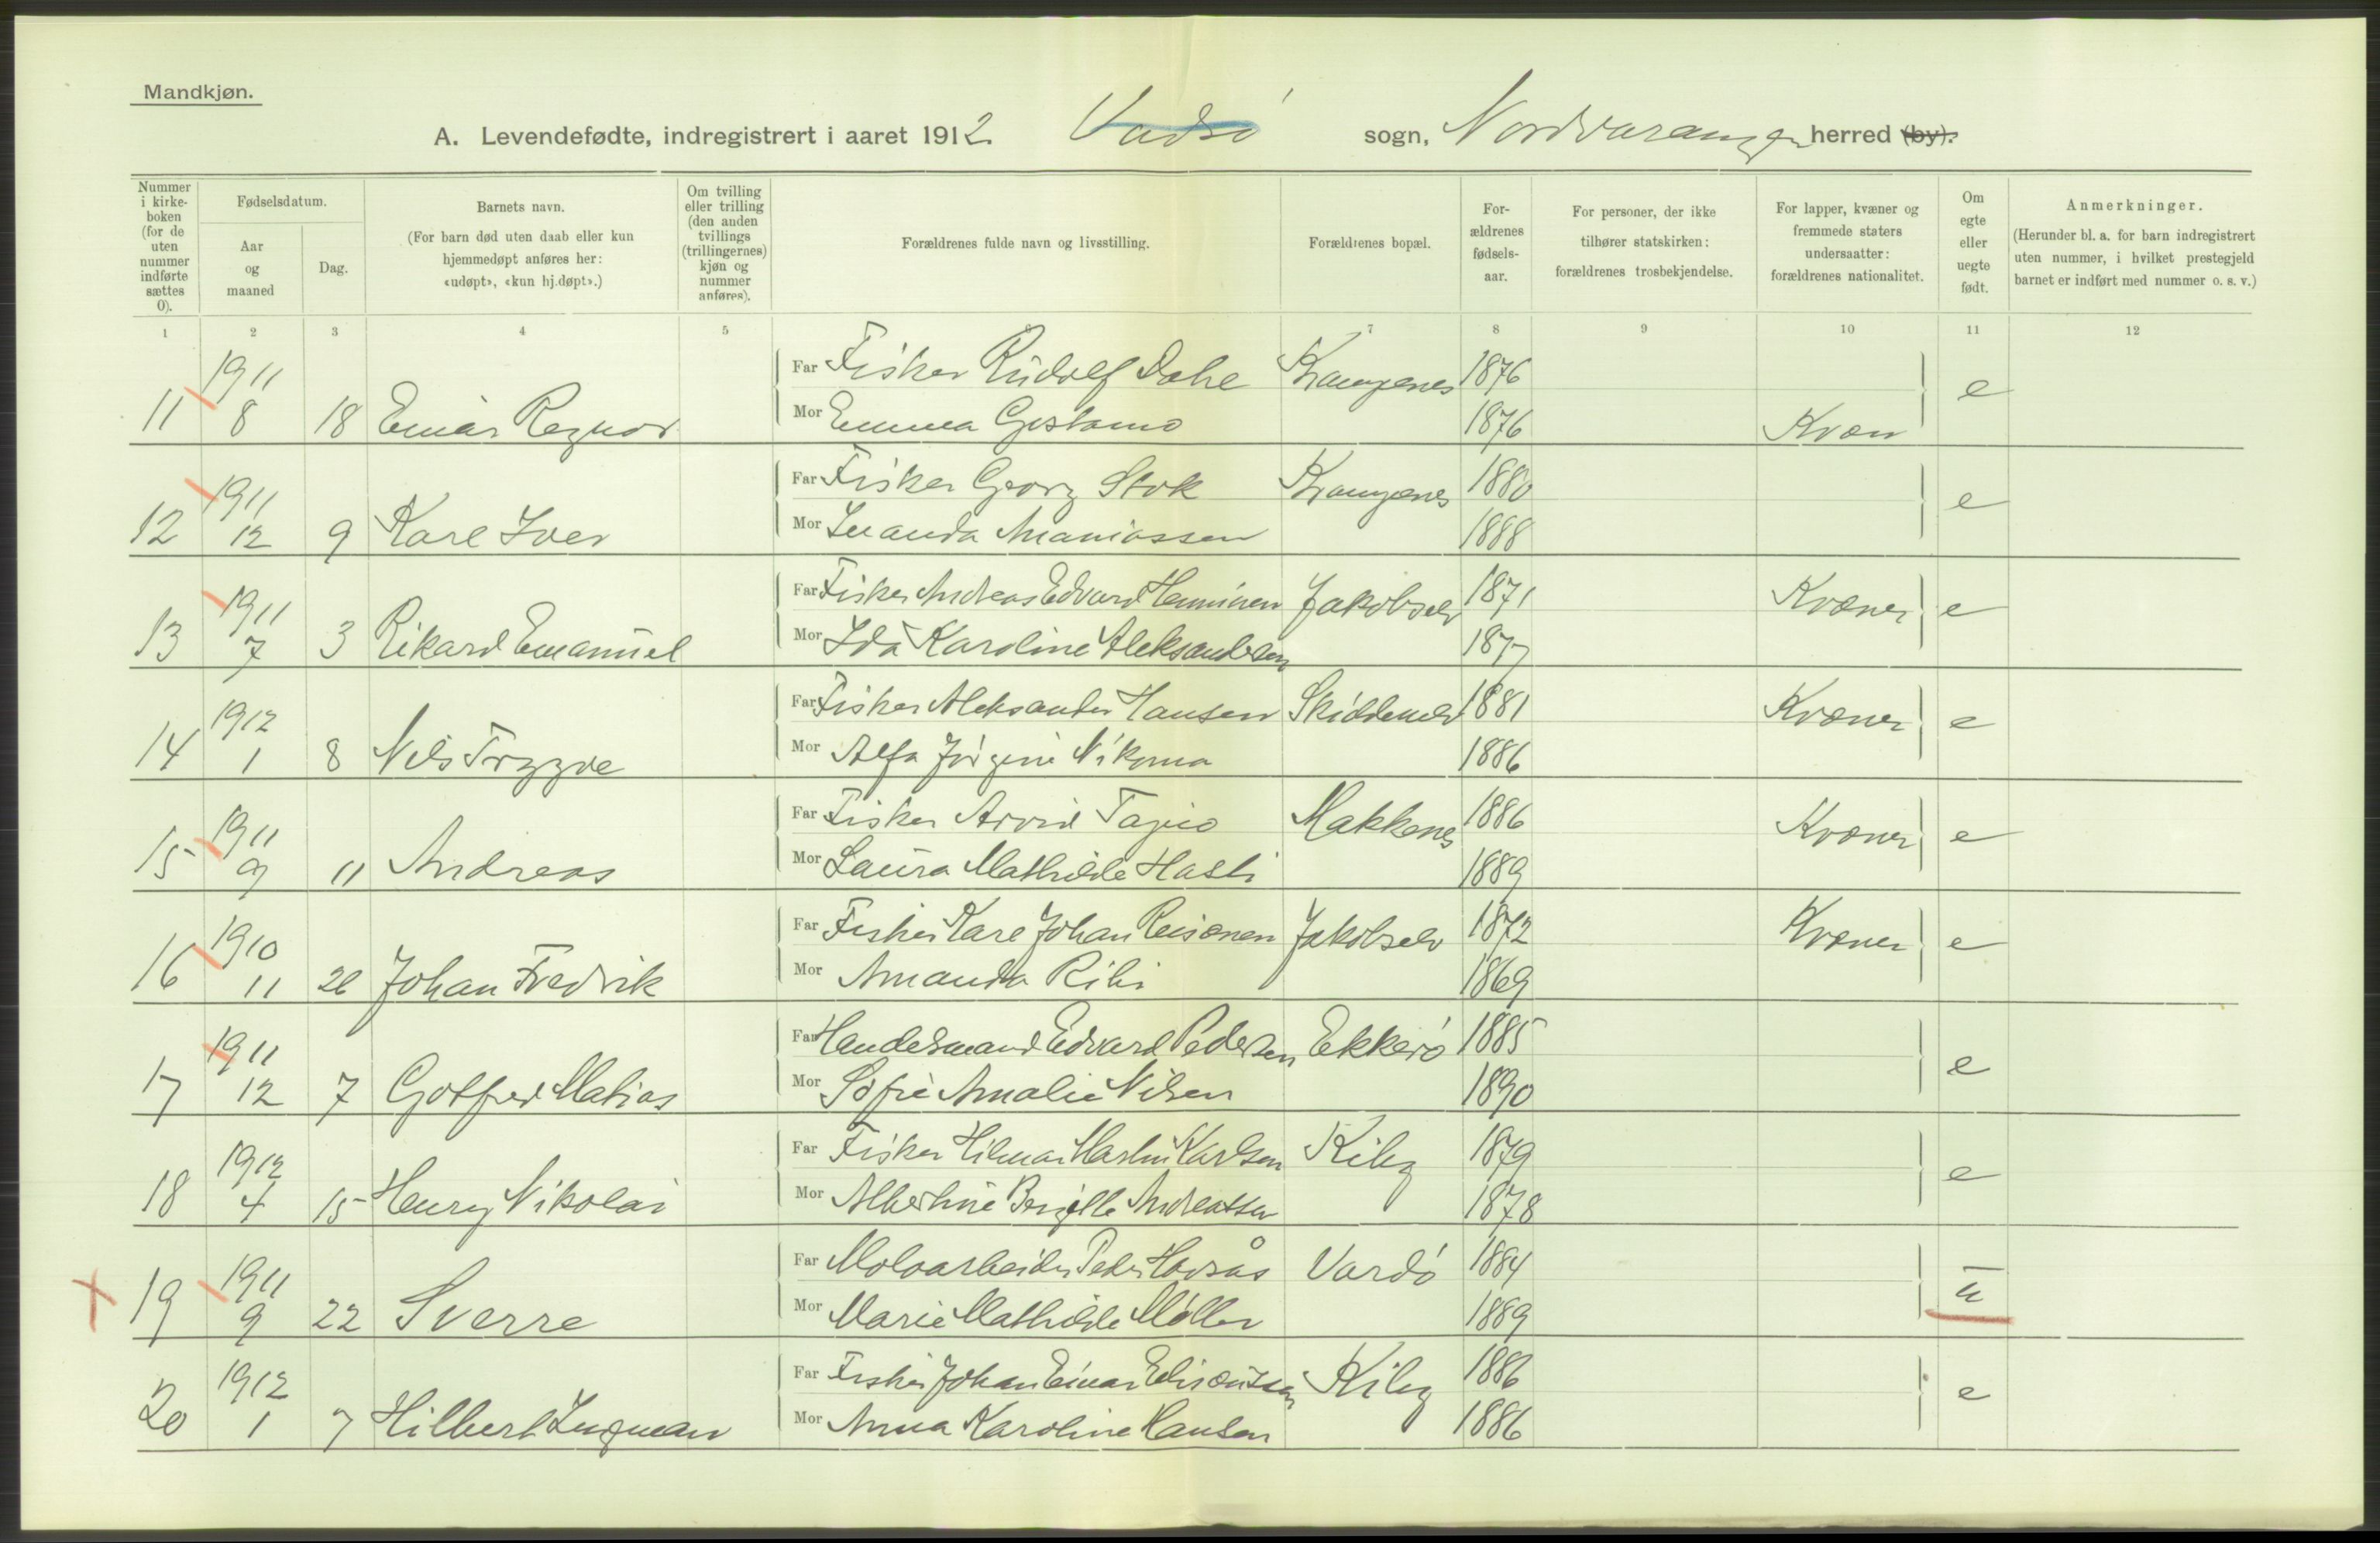 Mandkjøn.
A. Levendefødte, indregistrert i aaret 1912. Vadsö sogn, Nordvaranger herred (by).
Nummer i kirke-boken (for de uten nummer indførte sættes 0).
Fødselsdatum.
Aar og maaned
Dag.
Barnets navn.
(For barn død uten daab eller kun hjemmedøpt anføres her: «udøpt», «kun hj.døpt».)
Om tvilling eller trilling (den anden tvillings (trillingernes) kjøn og nummer anføres).
Forældrenes fulde navn og livsstilling.
Forældrenes bopæl.
For-ældrenes fødsels-aar.
For personer, der ikke tilhører statskirken: forældrenes trosbekjendelse.
For lapper, kvæner og fremmede staters undersaatter: forældrenes nationalitet.
Om egte eller uegte født.
Anmerkninger.
(Herunder bl. a. for barn indregistrert uten nummer, i hvilket prestegjeld barnet er indført med nummer o. s. v.)
1 2 3 4 5 7 8 9 10 11 12
1911 Far Fisker Rudolf Dahl Krampenes 1876 e
11 8 18 Einar Regnor Mor Emma 1876 Kvæn
1911 Far Fisker Georg Stok Krampenes 1880 e
12 12 9 Karl Iver Mor Ananiassen 1888
1911 Far Fisker Andreas Edvard Henninen Jakobselv 1871 Kvæner e
13 7 3 Rikard Emanuel Mor Ida Karoline Aleksandersen 1877
1912 Far Fisker Aleksander Hansen Skiddenelv 1881 Kvæner e
14 1 8 Nils Tryggve Mor Alfa Jörgine 1886
1911 Far Fisker Arvid Tapio Makkenes 1886 Kvæner e
15 9 11 Andreas Mor Laura Mathilde 1889
1910 Far Fisker Karl Johan Reisænen Jakobselv 1872 Kvæner e
16 11 Johan Fredrik Mor Amanda 1869
1911 Far Handelsmand Edvard Pedersen Ekkerö 1885 e
17 12 7 Gotfred Matias Mor Sofie Amalie Nilsen 1890
1912 Far Fisker Hilmar Martin Karlsen Kiby 1879 e
18 4 15 Henry Nikolai Mor Albertine Bergitte Andreassen 1878
1911 Far Moloarbeider Peder Havsås Vardö 1884 u
19 9 22 Sverre Mor Marie Mathilde Möller 1889
1912 Far Fisker Johan Einar Kiby 1886 e
20 1 7 Hilbert Ingman Mor Anna Karoline Hansen 1886